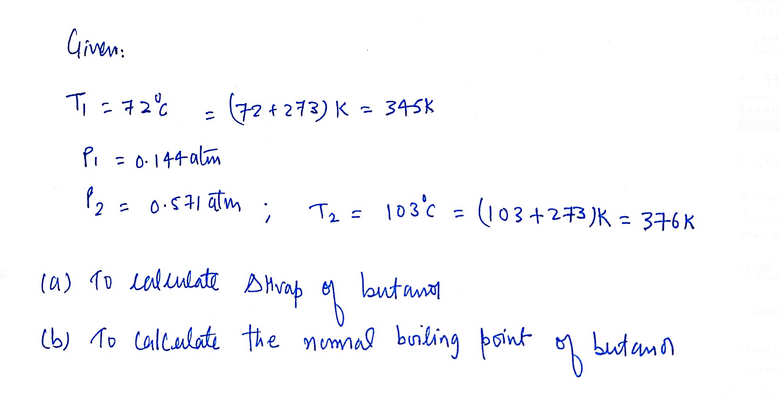 Given:
T₁ = 72°C = (72 + 273) K = 345K
P₁ = 0.144 atm
P₂ = 0.571 atm ; T₂ = 103°C = (103 + 273)K = 376K
(a) To calculate ΔHvap of butanol
(b) To calculate the normal boiling point of butanol